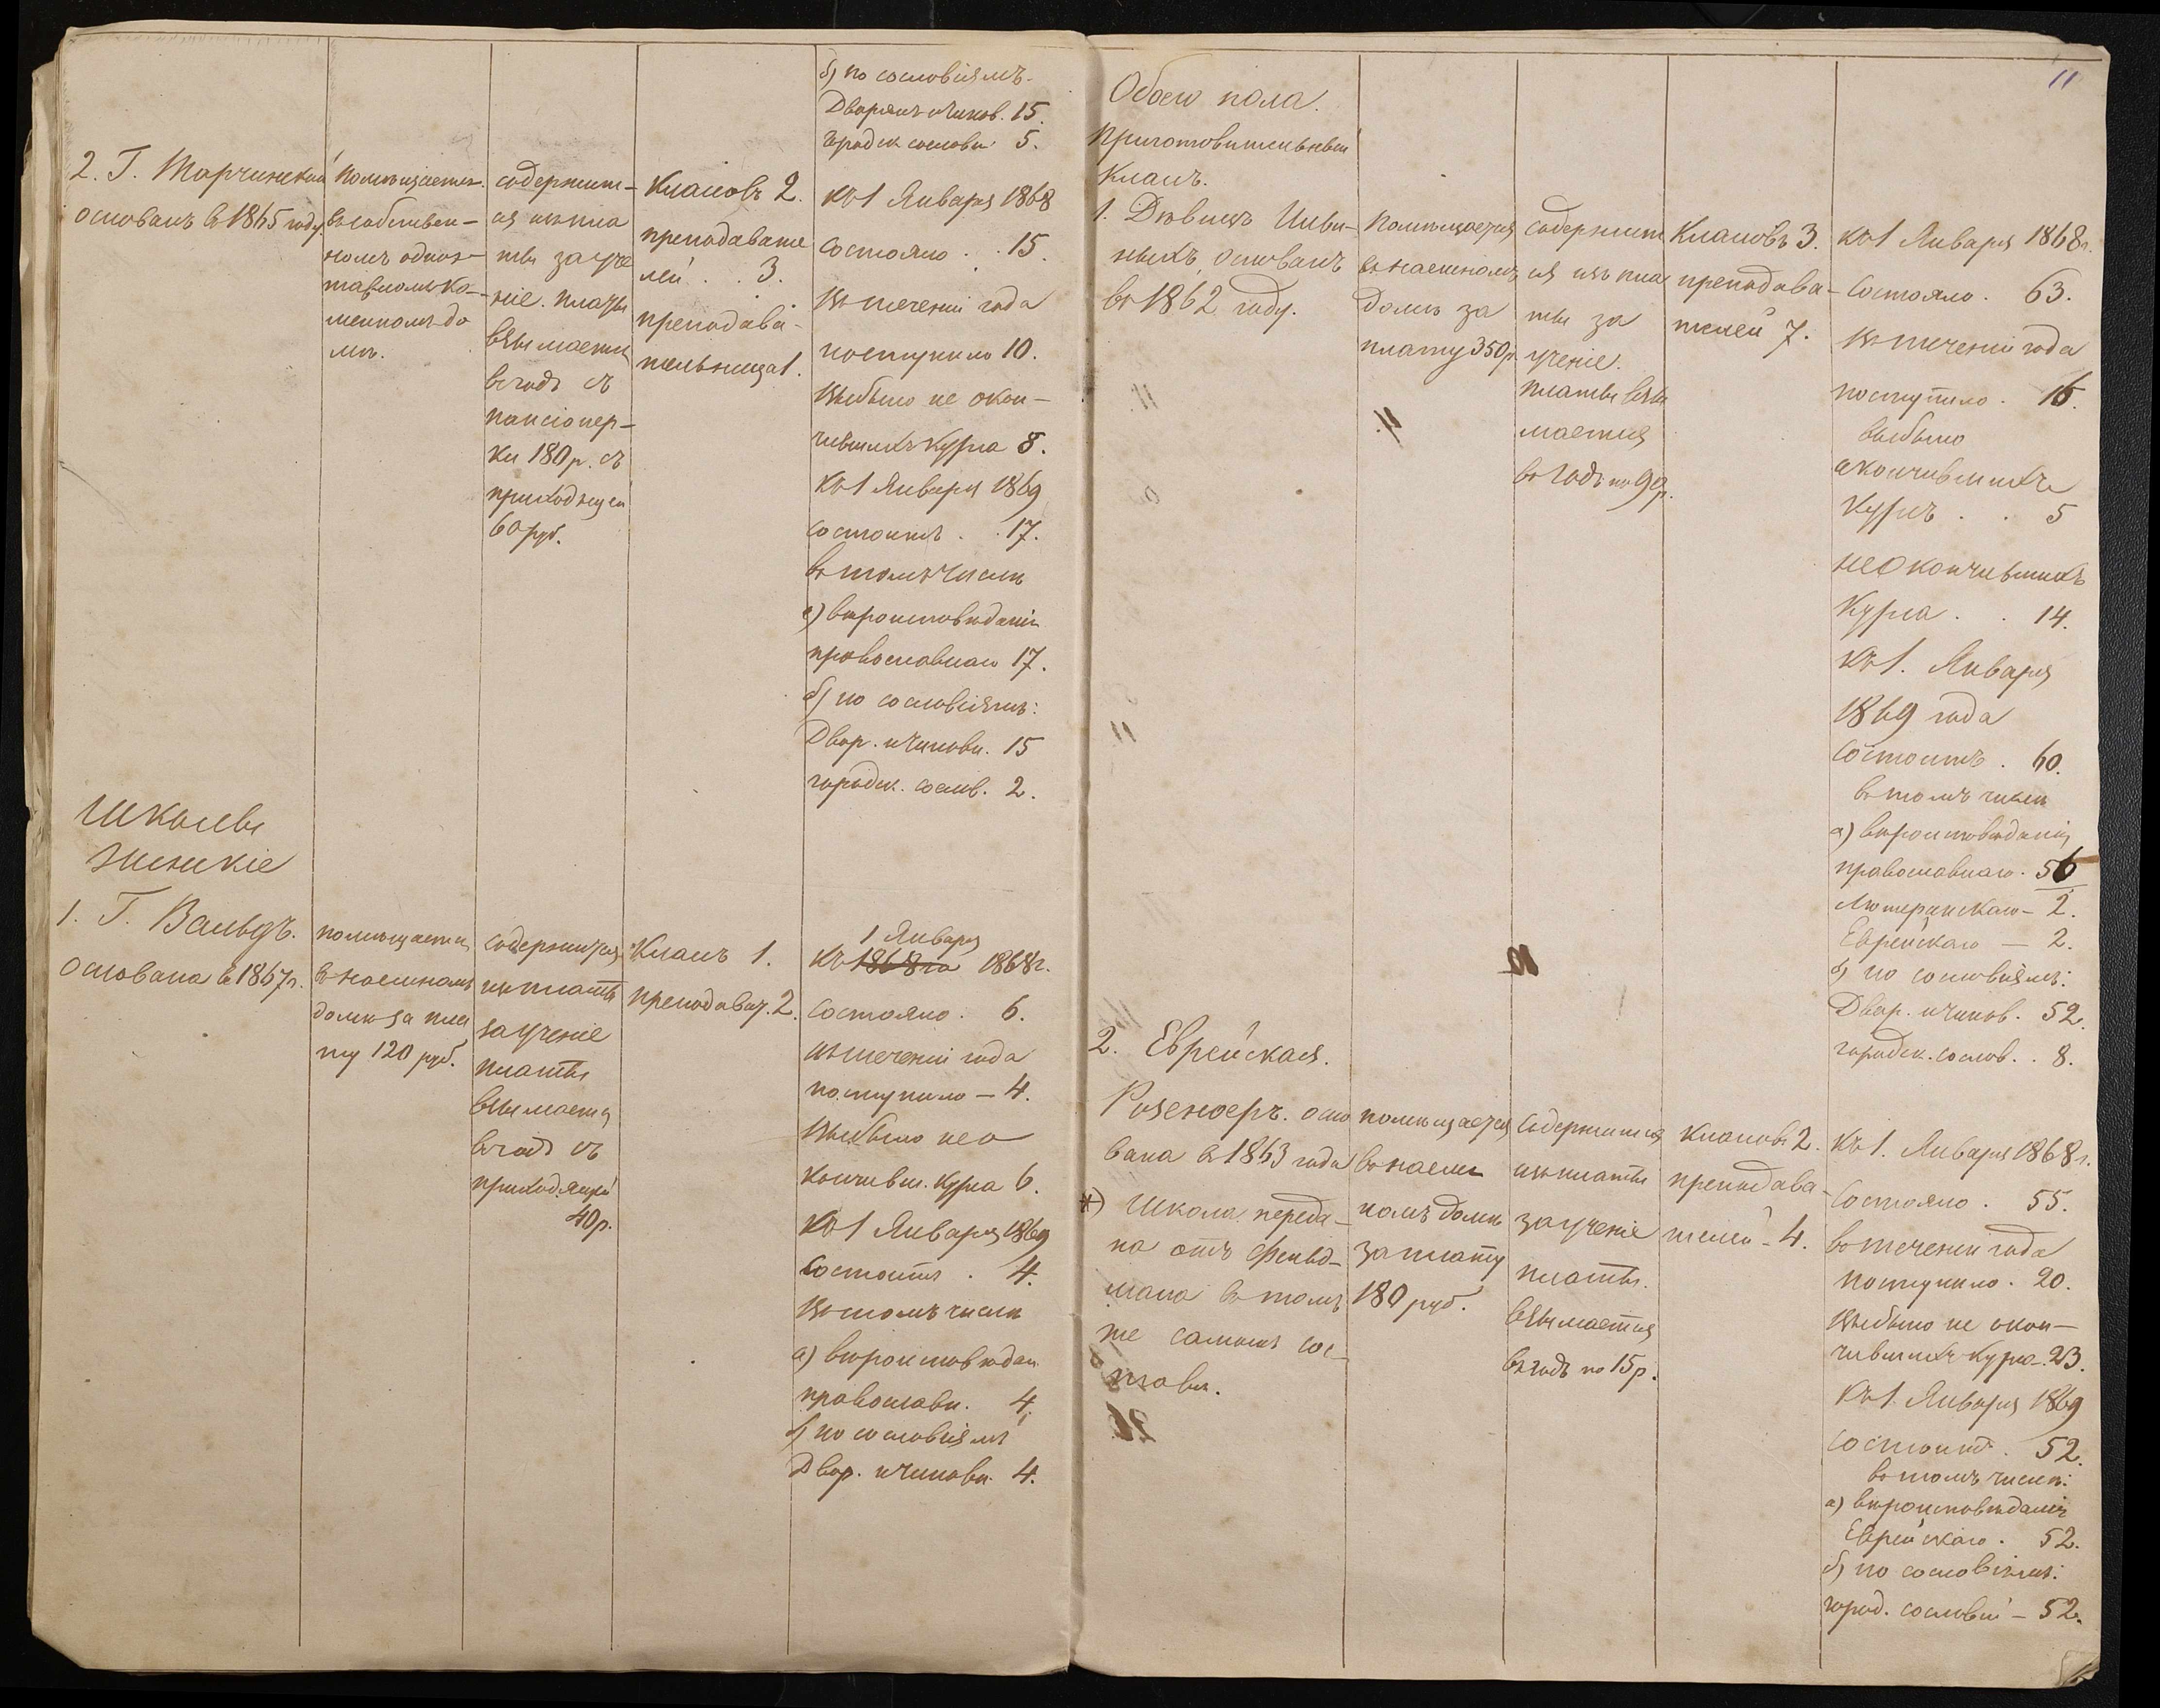 б) по сословіямъ.
Дворянъ и чинов. 15.
городск сослови 5.
2. Г. Тарчинской
основанъ в 1865 году.
Помѣщается
въ собствен-
номъ одноэ-
тажномъ ка-
менномъ до
мѣ.
содержит-
ся изъ пла
ты за уче
ніе. платы
взымается
въ годъ съ
пансіонер-
ки 180 р. съ
приходящей
60 руб.
Классовъ 2.
преподавате
лей . . 3.
преподава-
тельница 1.
Къ 1 Января 1868
состояло . . 15.
въ теченіи года
поступило 10.
выбыло не окон-
чившихъ курса 8.
Къ 1 Января 1869
состоитъ . . 17.
въ томъ числѣ
а) вѣроисповѣданія
православнаго 17.
б) по сословіямъ:
Двор. и чиновн. 15
городск. сослов. 2.
Школы
женскіе
1. Г. Вальдъ.
Основана в 1867 г.
помѣщается
въ наемномъ
домѣ за пла
ту 120 руб.
содержится
изъ платы
за ученіе
платы
взымается
въ годъ съ
приходящей
40 р.
Классъ 1.
преподават. 2.
1 Января
Къ 1868 го 1868 г.
состояло . 6.
въ теченіи года
поступило — 4.
выбыло нео
кончивш. курса 6.
Къ 1 Января 1869
Состоитъ . 4.
въ томъ числѣ
а) вѣроисповѣдан.
православн. 4.
б) по сословіямъ
Двор. и чиновн. 4.
11
Обоего пола.
Приготовительный
Классъ.
1. Дѣвицъ
ныхъ, основанъ
въ 1862 году.
Помѣщается
въ наемномъ
домѣ за
плату 350 р.
содержит
ся изъ пла
ты за
ученіе.
платы взы
мается
въ годъ по 90 р.
Классовъ 3.
преподава-
телей 7.
Къ 1 Января 1868 г.
Состояло . 63.
въ теченіи года
поступило . 16.
выбыло
окончившихъ
курсъ . . 5
неокончившихъ
курса . . 14.
Къ 1. Января
1869 года
состоитъ . 60.
въ томъ числѣ
а) вѣроисповѣданія
православнаго . 56
Лютеранскаго — 2.
Еврейскаго — 2.
б) по сословіямъ:
Двор. и чинов. 52.
городск. сослов. . 8.
2. Еврейская.
осно
вана в 1863 года
*) Школа переда-
на отъ Фельд-
мана въ томъ
же самомъ сос-
тавѣ.
помѣщается
въ наем
номъ домѣ
за плату
180 руб.
Содержится
изъ платы
за ученіе
платы.
взымается
въ годъ по 15 р.
Классовъ 2.
преподава-
телей — 4.
Къ 1. Января 1868 г.
Состояло . 55.
въ теченіи года
поступило . 20.
выбыло не окон-
чившихъ курса . 23.
Къ 1. Января 1869
состоитъ . 52.
въ томъ числѣ:
а) вѣроисповѣданія
Еврейскаго . 52.
б) по сословіямъ:
город. сословій — 52.